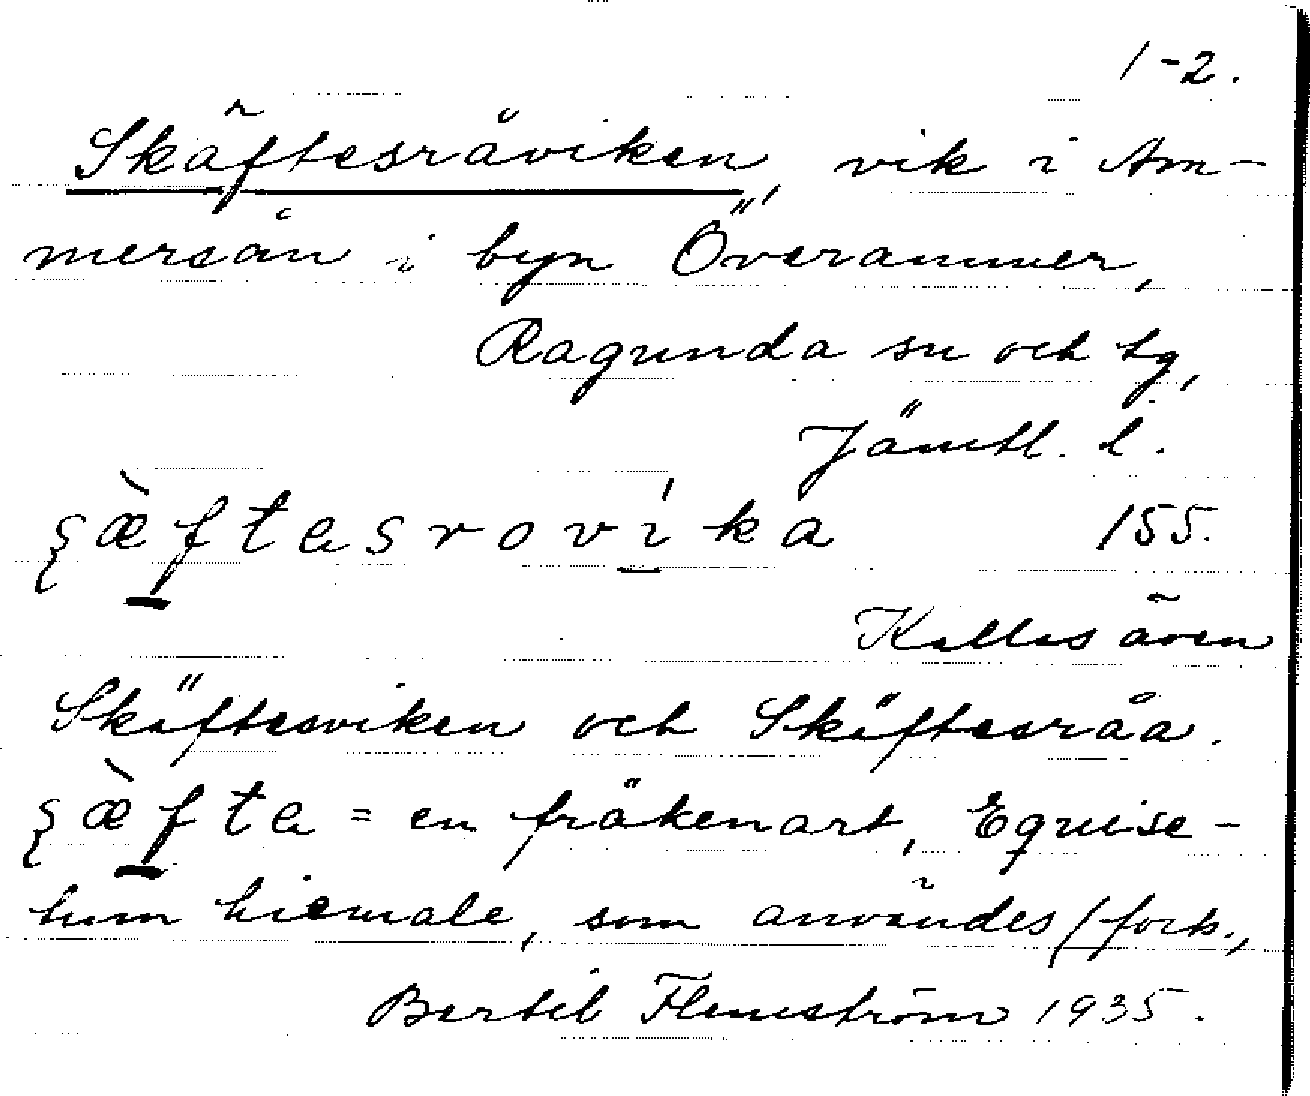 1-2.
Skäftesråviken, vik i Am-
mersån i byn Överammer,
Ragunda sn och tg,
Jämtl. l.
ȿæ̀ftasrovíka 155.
Kallas även
Skäftesviken och Skäftesråa.
ȿæ̀fta = en fräkenart, Equise-
tum hiemale, som användes (forts.,
Bertil Flemström 1935.